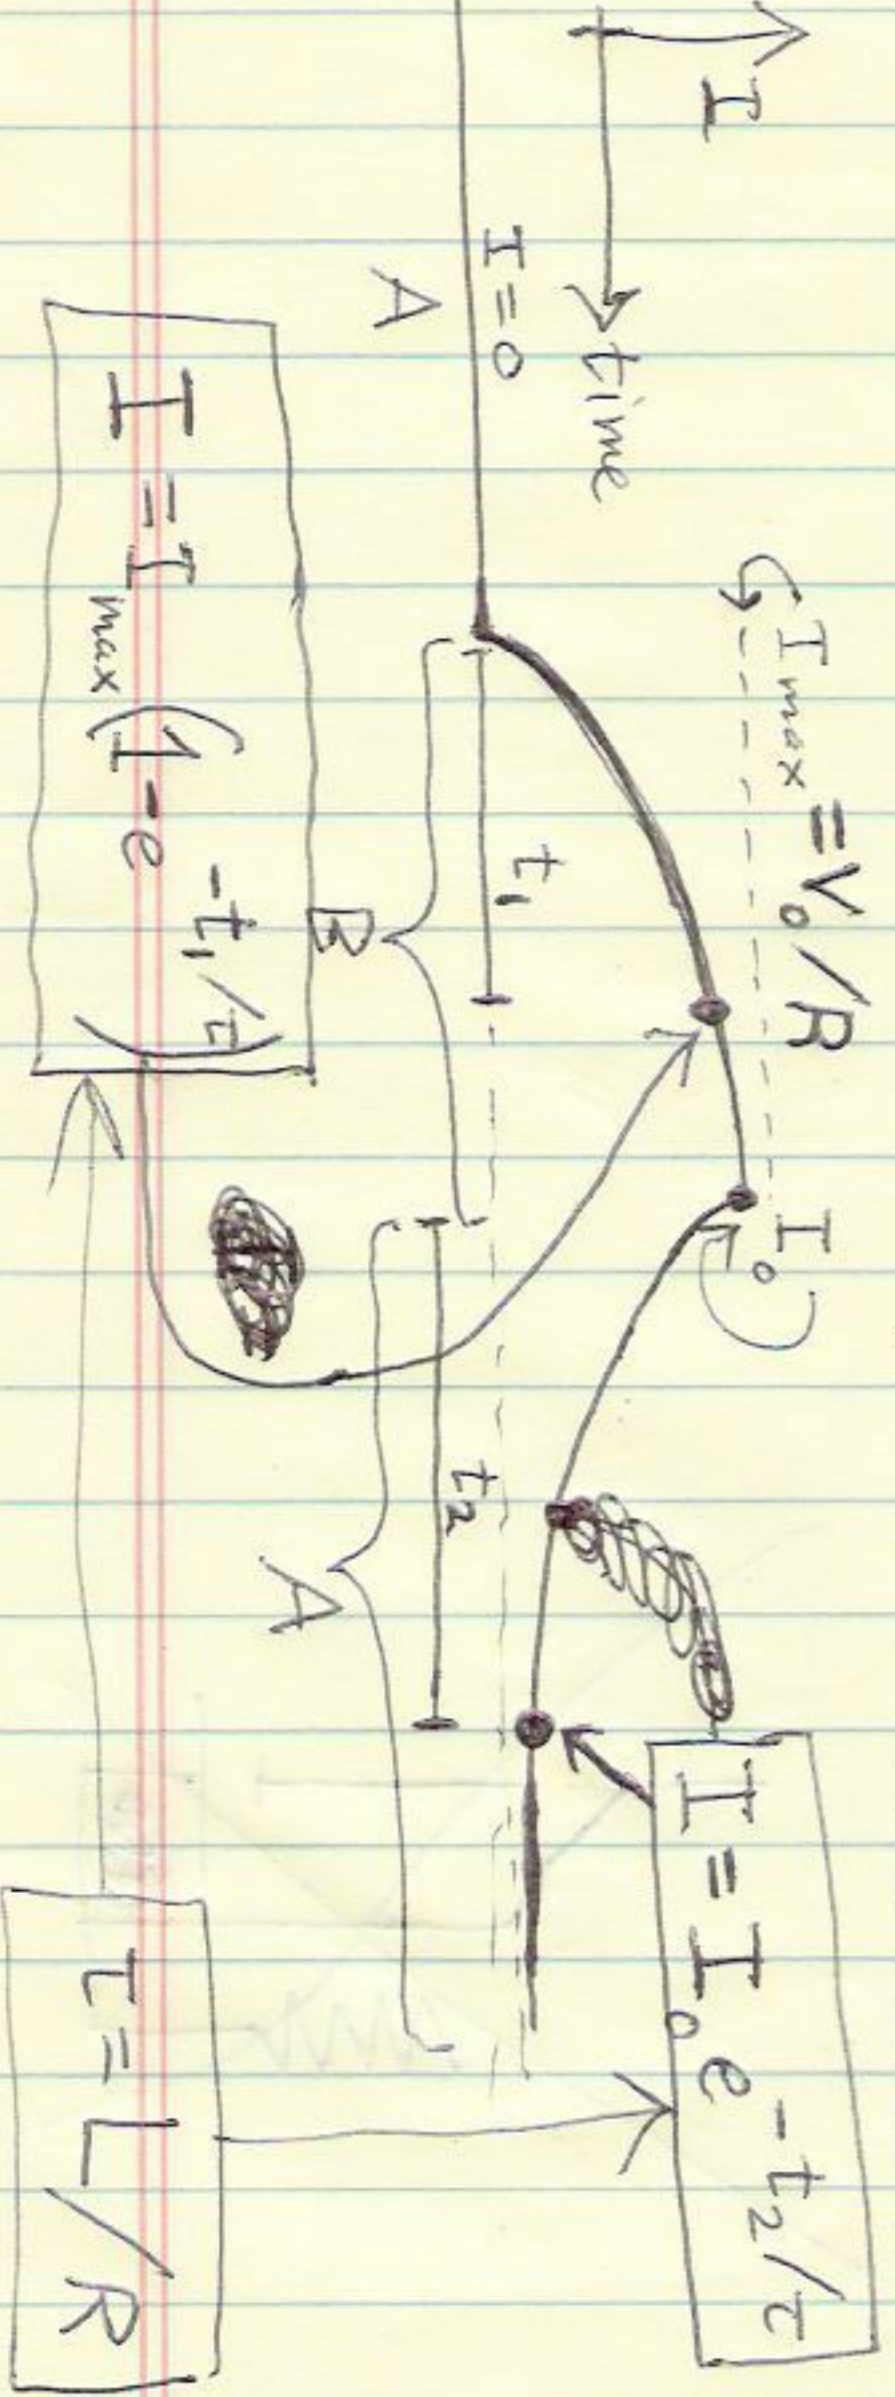 I
time
I = 0
A
I max = V₀/R
I₀
t₁
B
t₂
A
I = I max (1 - e^(-t₁/τ))
I = I₀ e^(-t₂/τ)
τ = L/R